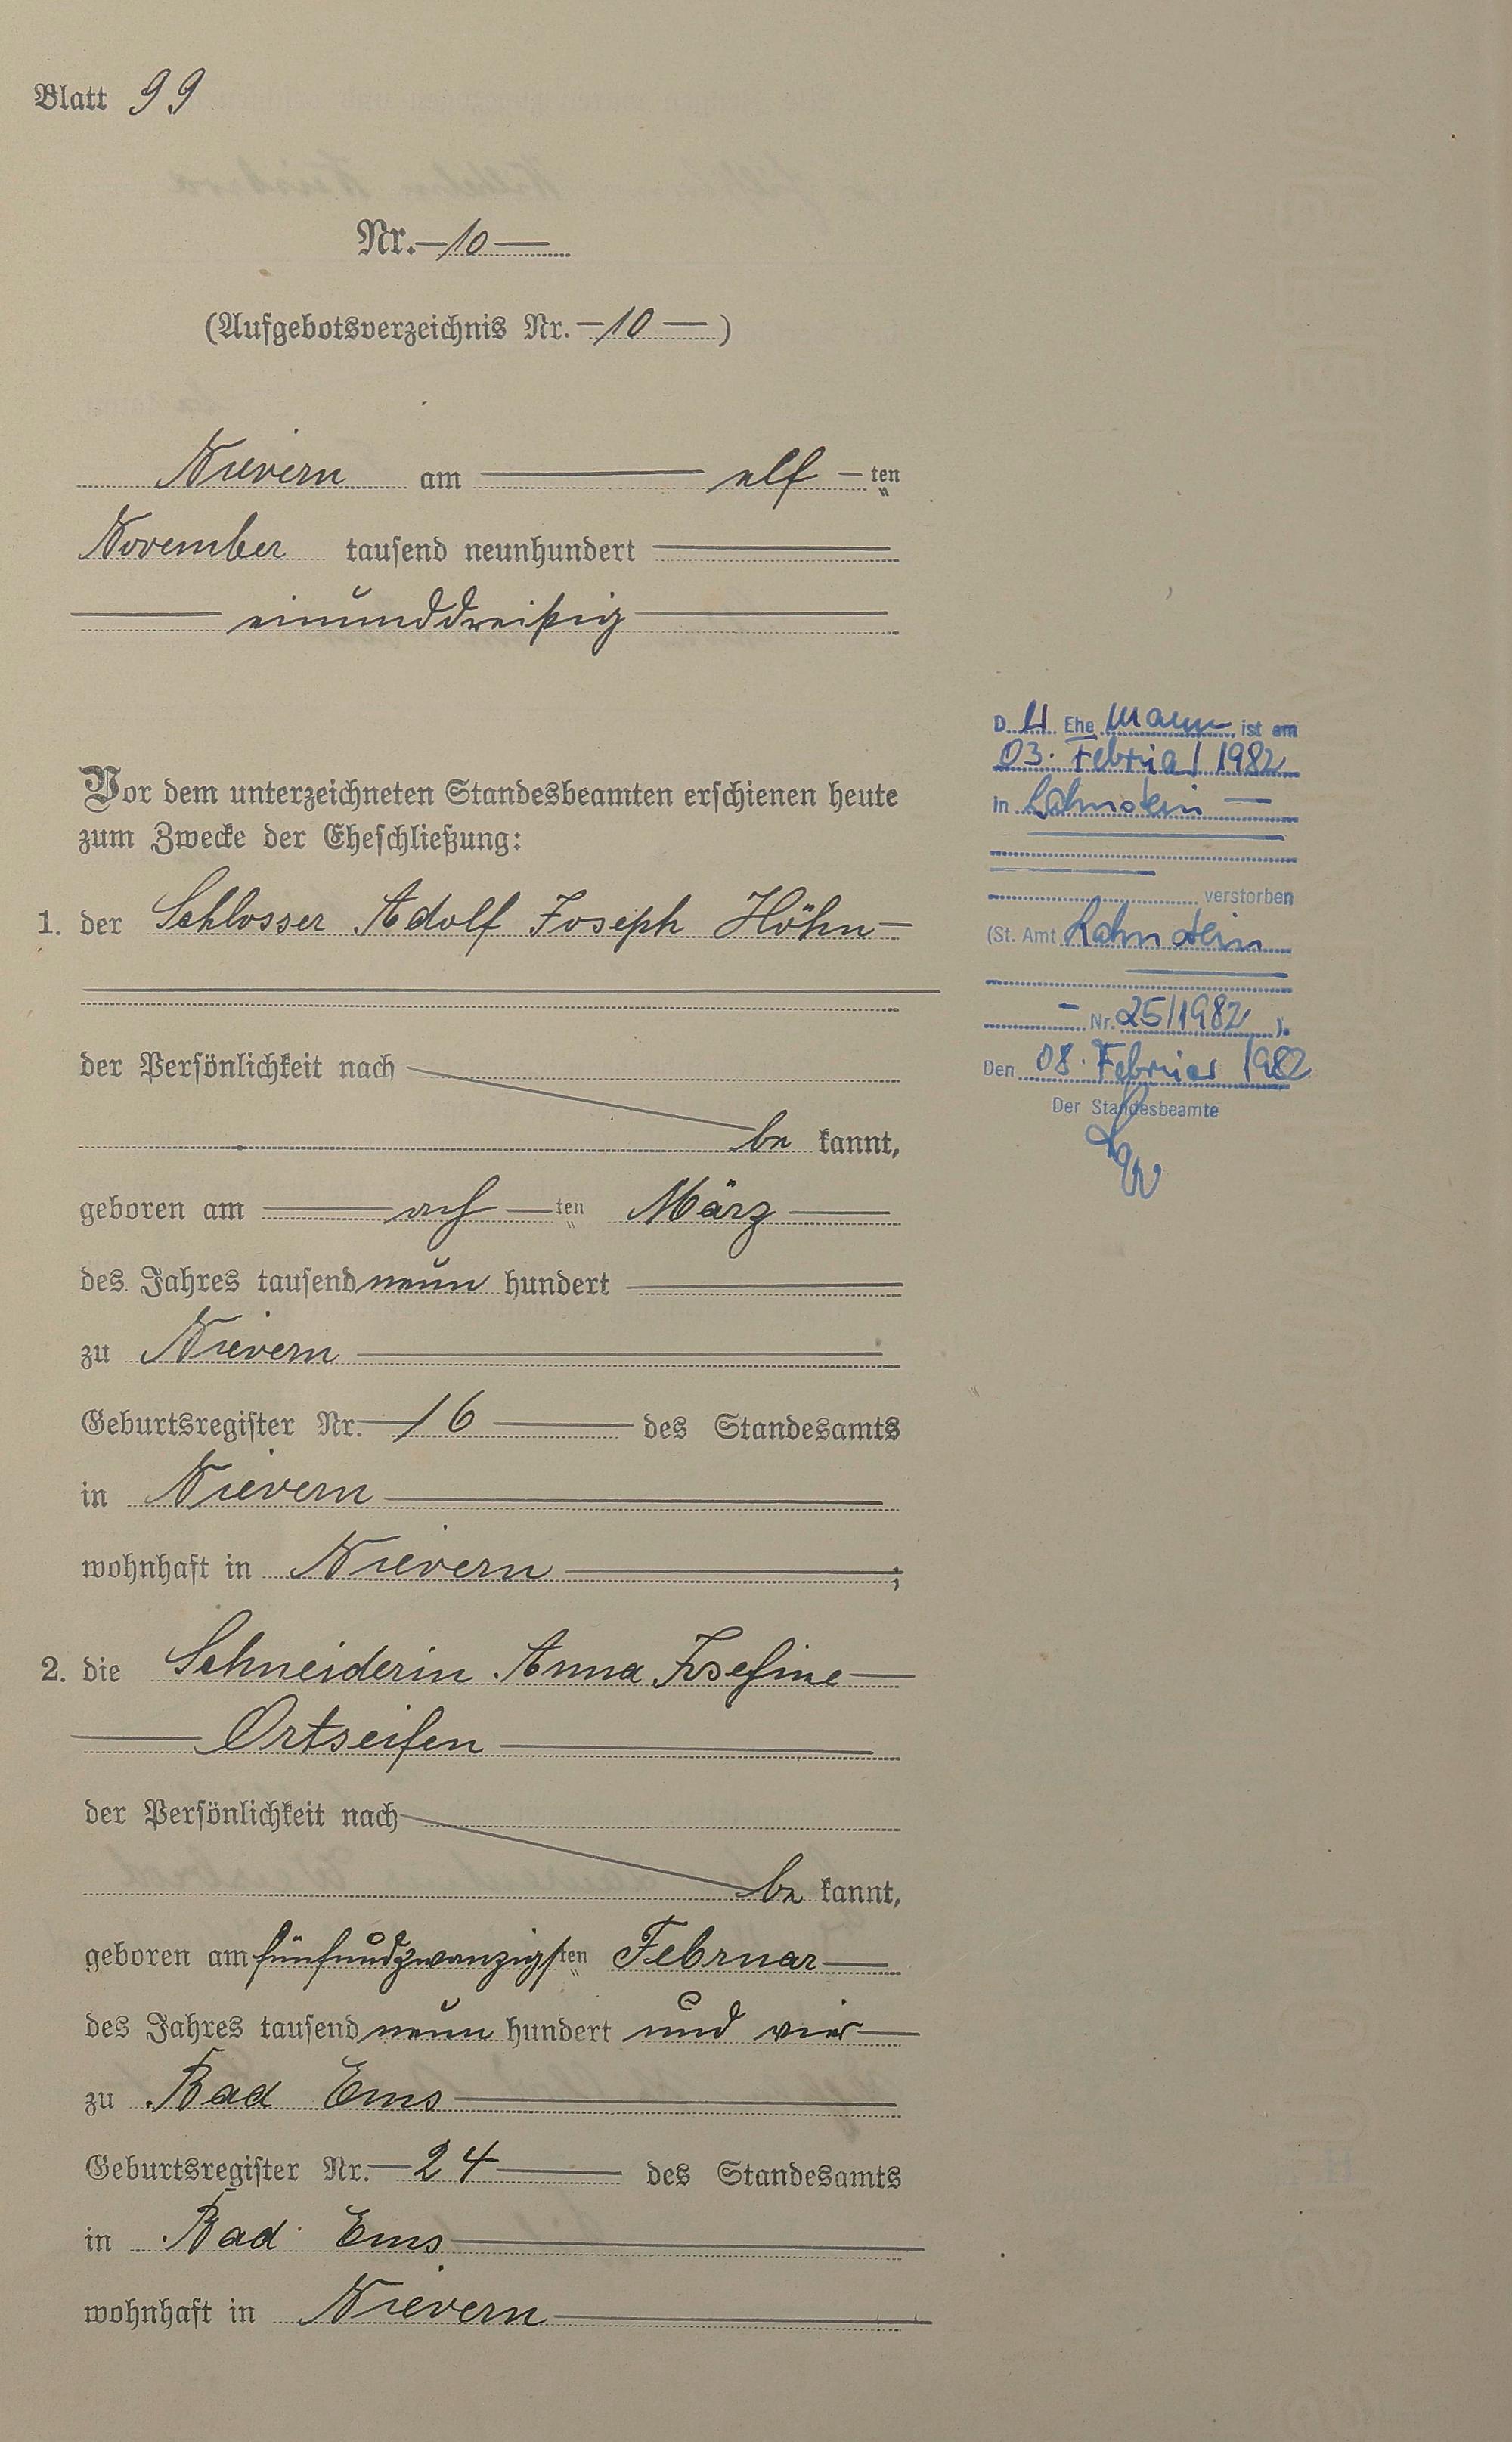 Blatt 99
Nr. 10
(Aufgebotsverzeichnis Nr. 10 )
Nievern am elf ten
November tausend neunhundert
einunddreißig
Vor dem unterzeichneten Standesbeamten erschienen heute
zum Zwecke der Eheschließung:
1. der Schlosser Adolf Joseph Höhn
der Persönlichkeit nach
be kannt,
geboren am ach ten März
des Jahres tausend neun hundert
zu Nievern
Geburtsregister Nr. 16 des Standesamts
in Nievern
wohnhaft in Nievern ;
2. die Schneiderin Anna Josefine
Ortseifen
der Persönlichkeit nach
be kannt,
geboren am fünfundzwanzigsten Februar
des Jahres tausend neun hundert und vier
zu Bad Ems
Geburtsregister Nr. 24 des Standesamts
in Bad Ems
wohnhaft in Nievern
D er Ehe mann ist am
03. Februar 1982
in Lahnstein
verstorben
(St. Amt Lahnstein
Nr. 25/1982 ).
Den 08. Februar 1982
Der Standesbeamte